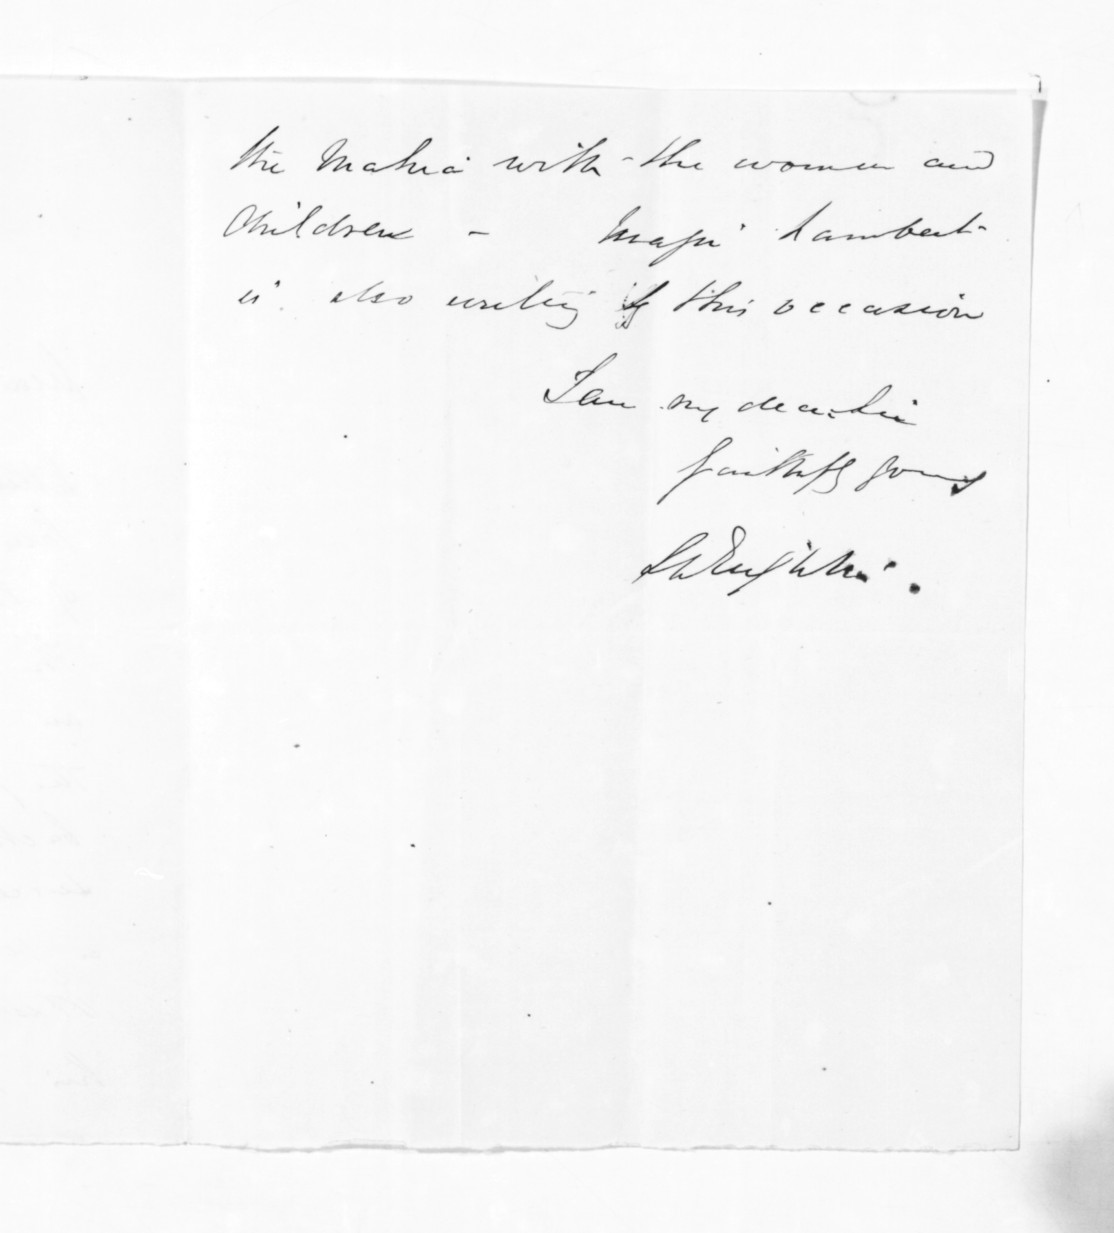 the Mahia with the women and
Children - Major Lambert
is also writing by this occasion
I am my dear Sir
faithfly yours